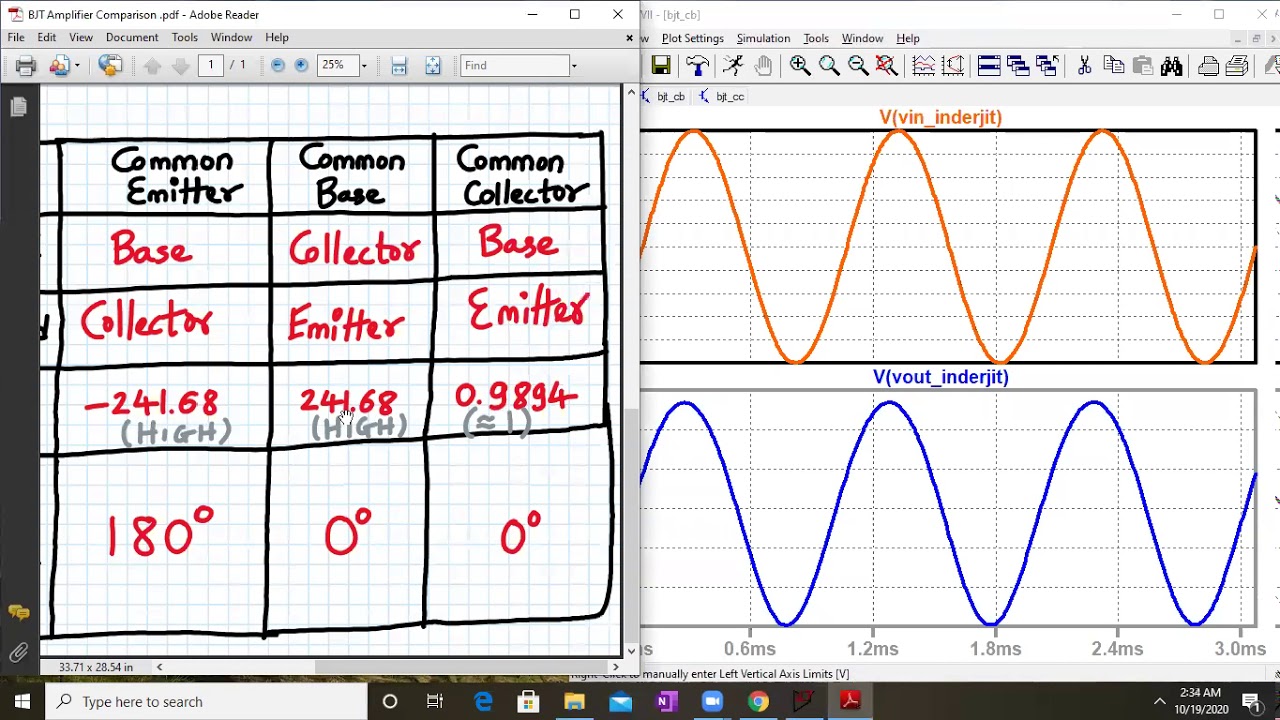 BJT Amplifier Comparison .pdf - Adobe Reader
File Edit View Document Tools Window Help
1 / 1 25% Find
Common Emitter
Common Base
Common Collector
Base
Collector
Base
Collector
Emitter
Emitter
-241.68
(HIGH)
241.68
(HIGH)
0.9894
(≈ 1)
180°
0°
0°
33.71 x 28.54 in
VII - [bjt_cb]
Plot Settings Simulation Tools Window Help
bjt_cb bjt_cc
V(vin_inderjit)
V(vout_inderjit)
0.6ms 1.2ms 1.8ms 2.4ms 3.0ms
Right-Click to manually enter Left Vertical Axis Limits [V]
Type here to search
2:34 AM
10/19/2020